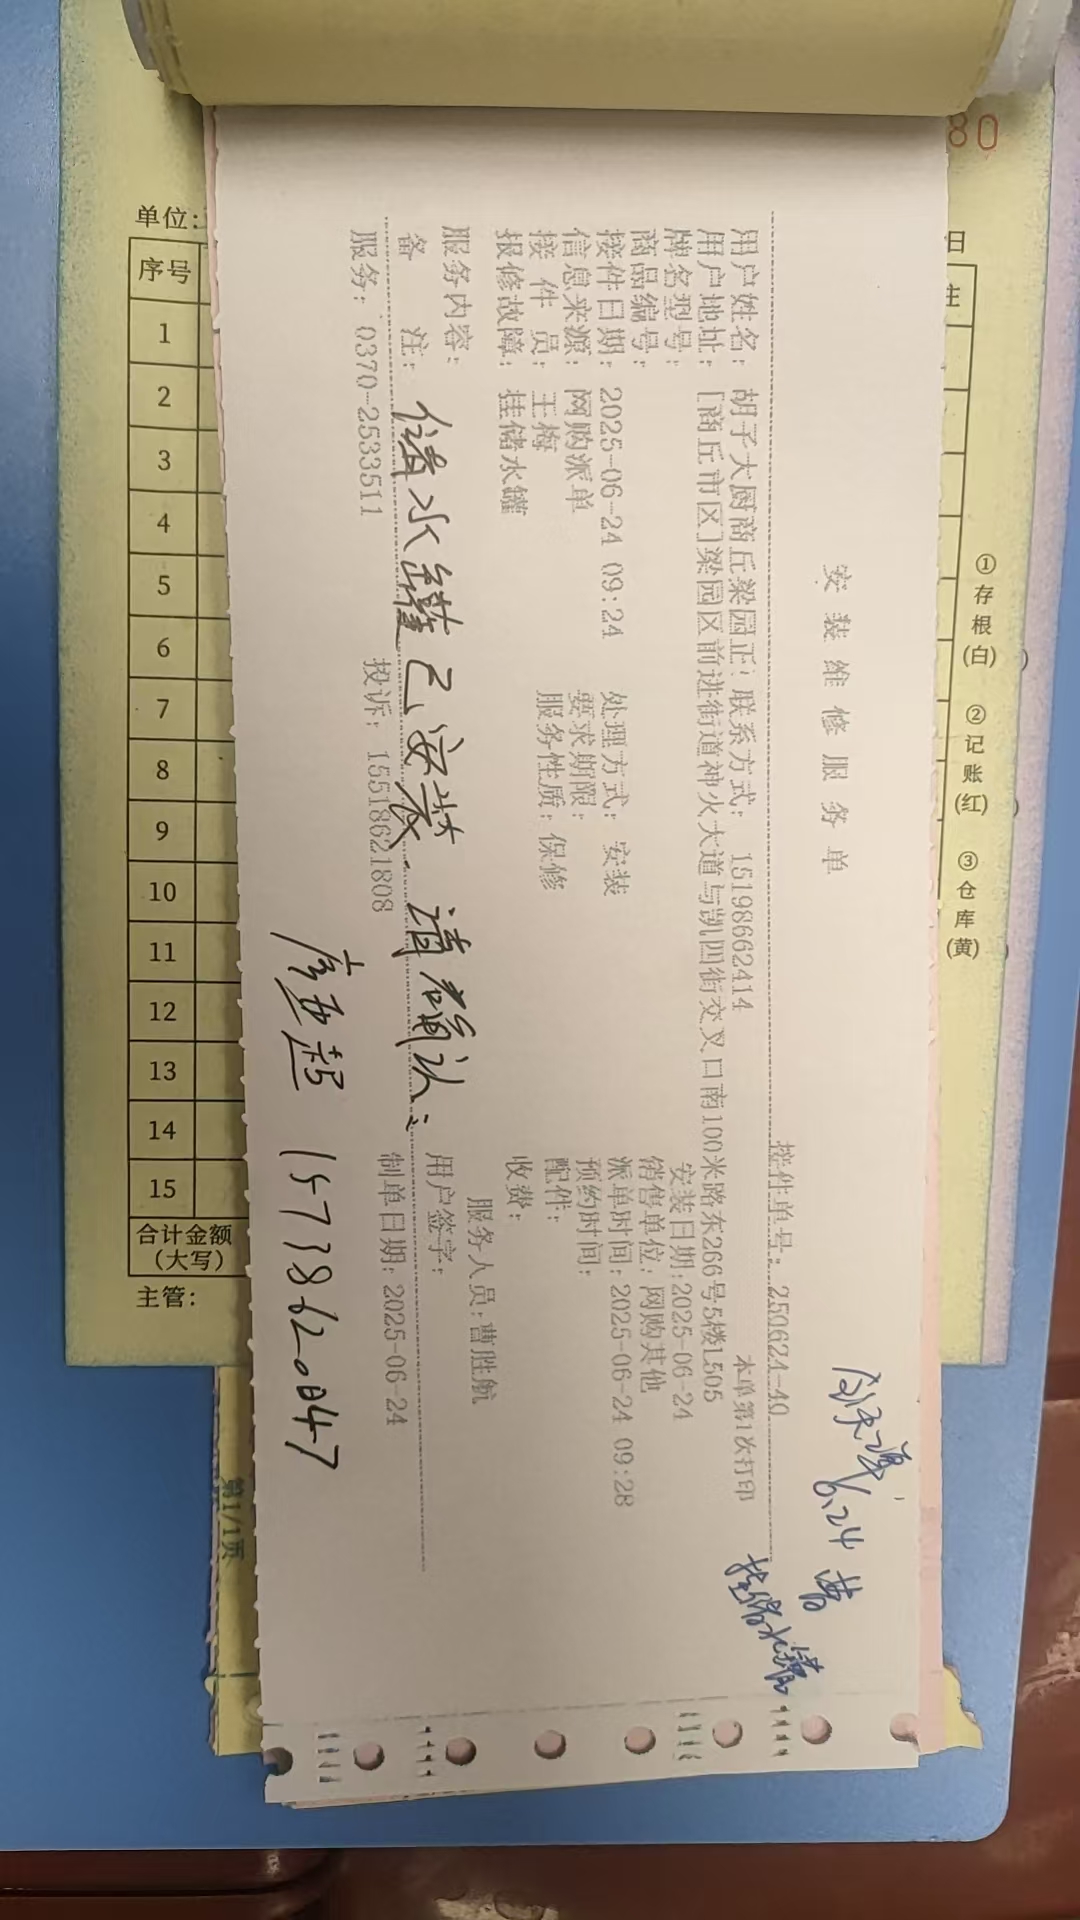 安装维修服务单
接件单号：250624-40
本单第1次打印
用户姓名：胡子大厨商丘梁园正 联系方式：15198662414
用户地址：[商丘市区]梁园区前进街道神火大道与凯四街交叉口南100米路东266号5楼L505
牌名型号：
安装日期:2025-06-24
商品编号：
销售单位：网购其他
接件日期：2025-06-24 09:24 处理方式：安装 派单时间：2025-06-24 09:28
信息来源：网购派单 要求期限： 预约时间：
接件员：王梅 服务性质：保修 配件：
报修故障：挂储水罐 收费：
服务内容： 服务人员：曹胜航
备注： 用户签字：
储水罐已安装.请确认
服务：0370-2533511 投诉：15518621808 制单日期：2025-06-24
15778620847
6.24 曹
挂储水罐
80
单位：
日
序号
注
1
2
3
4
5
6
7
8
9
10
11
12
13
14
15
合计金额
（大写）
主管：
①存根(白) ②记账(红) ③仓库(黄)
第1/1页